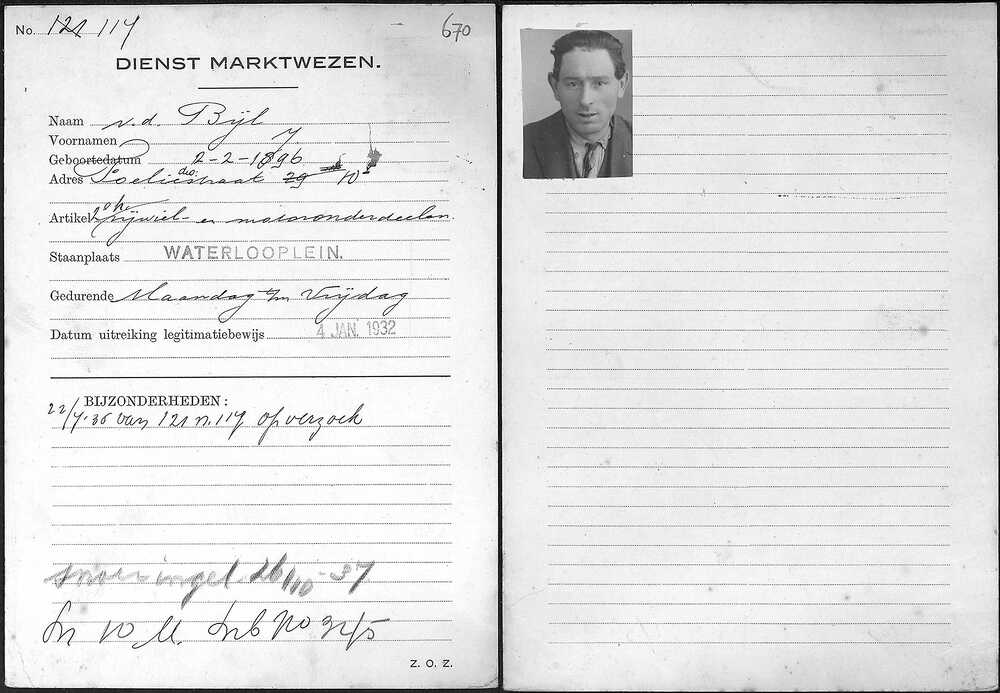 No. 121 117 670
DIENST MARKTWEZEN.
Naam v.d. Bijl
Voornamen J
Geboortedatum 2-2-1896
Adres straat 29 10
Artikel Rijwiel- en motoronderdeelen.
Staanplaats WATERLOOPLEIN.
Gedurende Maandag t/m Vrijdag
Datum uitreiking legitimatiebewijs 4 JAN. 1932
BIJZONDERHEDEN:
22/4-36 van 121 n. 117 op verzoek
singel 26/10-37
Z. O. Z.